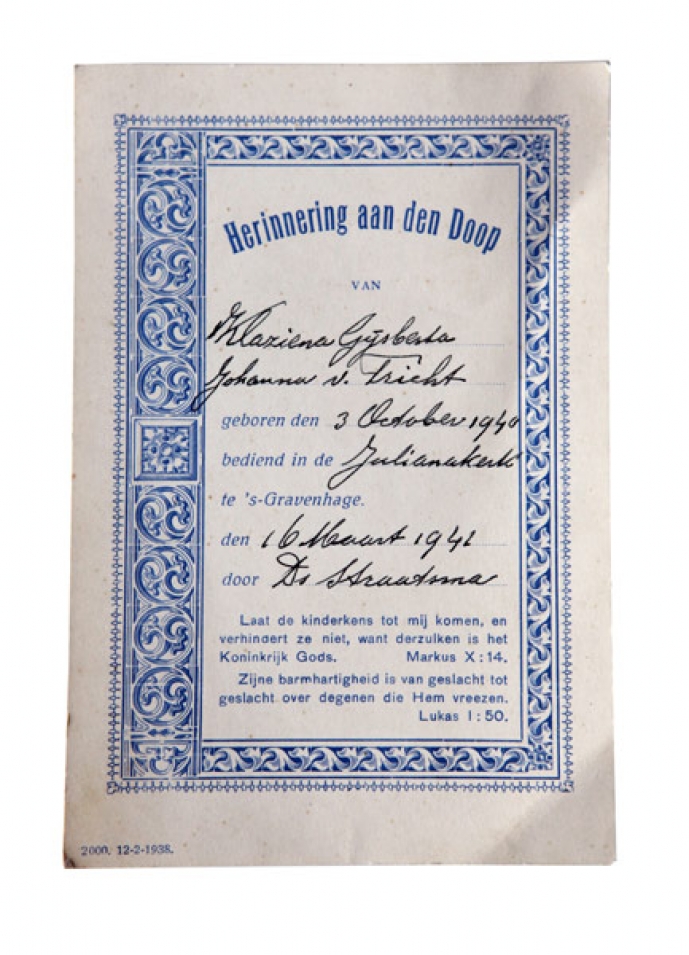 Herinnering aan den Doop
VAN
Klaziena Gijsberta
Johanna v. Tricht
geboren den 3 October 1940
bediend in de Julianakerk
te 's-Gravenhage.
den 16 Maart 1941
door Ds Straatsma
Laat de kinderkens tot mij komen, en
verhindert ze niet, want derzulken is het
Koninkrijk Gods. Markus X : 14.
Zijne barmhartigheid is van geslacht tot
geslacht over degenen die Hem vreezen.
Lukas I : 50.
2000. 12-2-1938.